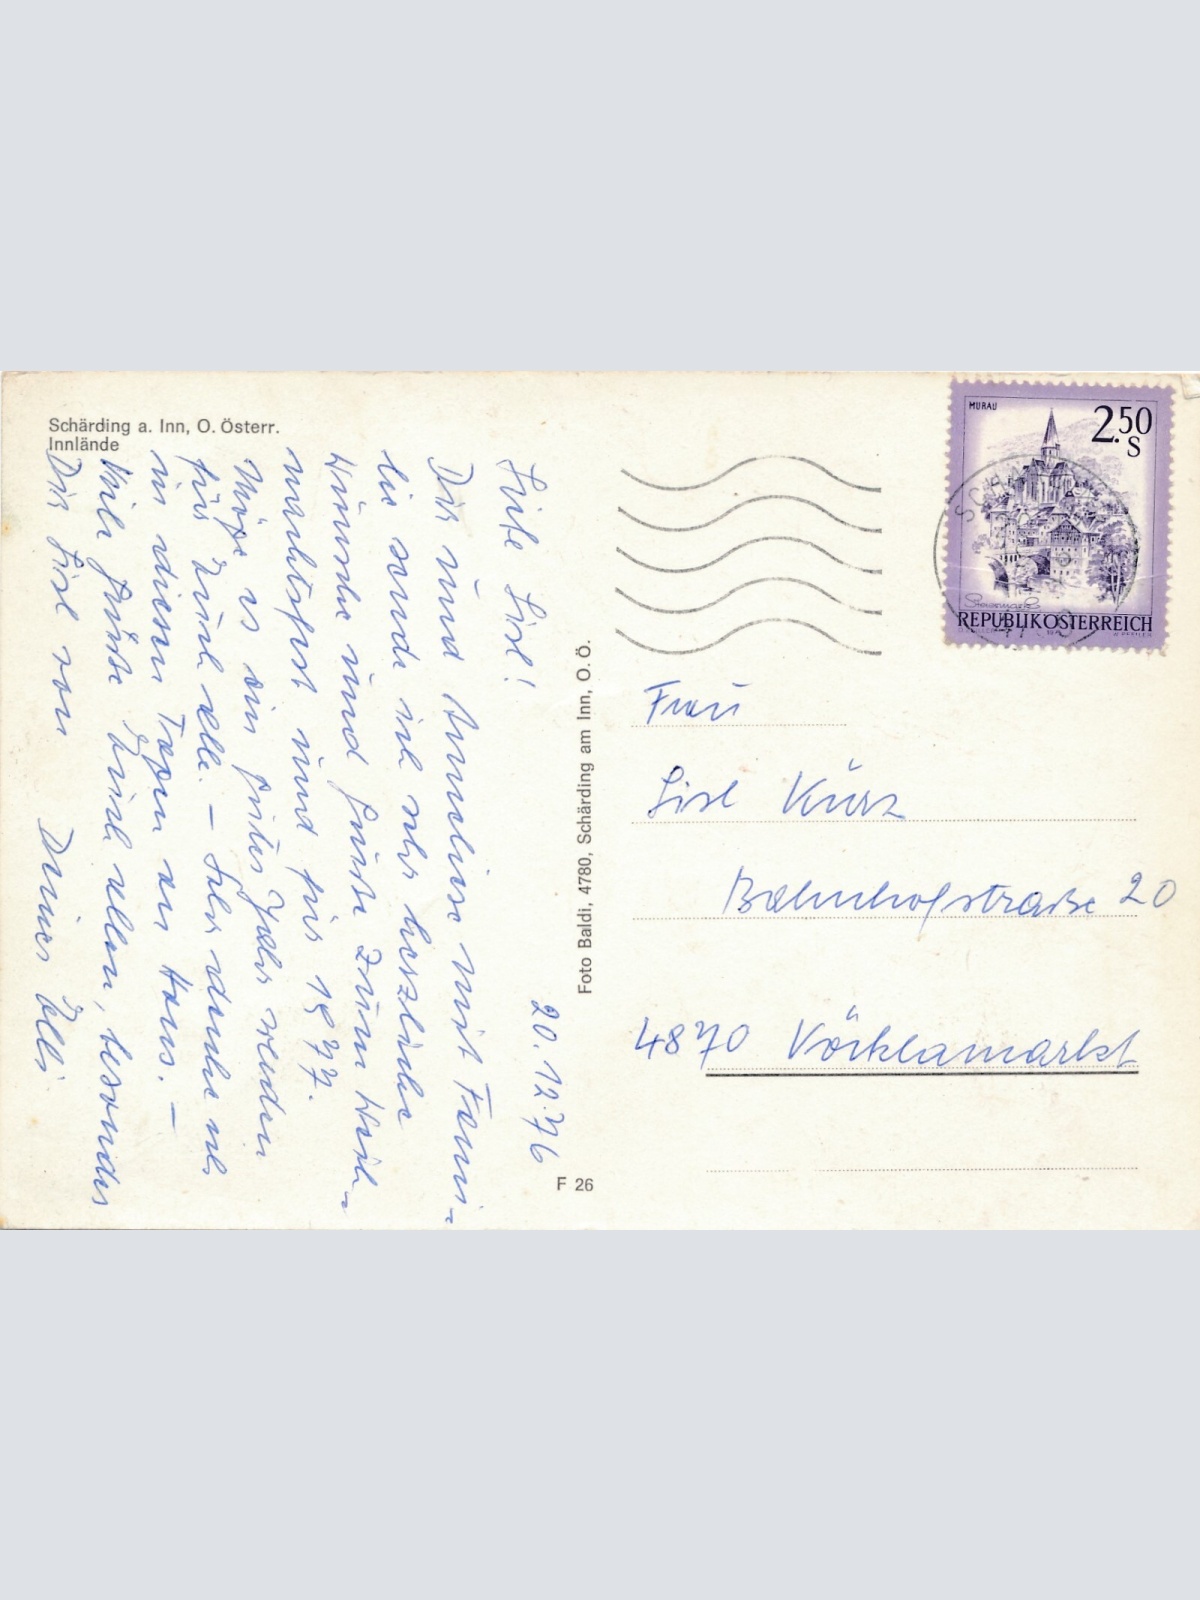 Schärding a. Inn, O. Österr.
Innlände
20.12.76
Liebe Lisl!
Dir und Anneliese mit Fami-
lie sende ich sehr herzliche
Wünsche und Grüße zum Weih-
nachtsfest und für 1977.
Möge es ein gutes Jahr werden
für Euch alle. – Sehr denke ich
in diesen Tagen an Hans. –
Viele Grüße Euch allen, besonders
Dir Lisl von
Deiner
Foto Baldi, 4780, Schärding am Inn, O. Ö.
F 26
MURAU
2.50
S
REPUBLIK ÖSTERREICH
Frau
Lisl Kurz
Bahnhofstraße 20
4870 Vöcklamarkt